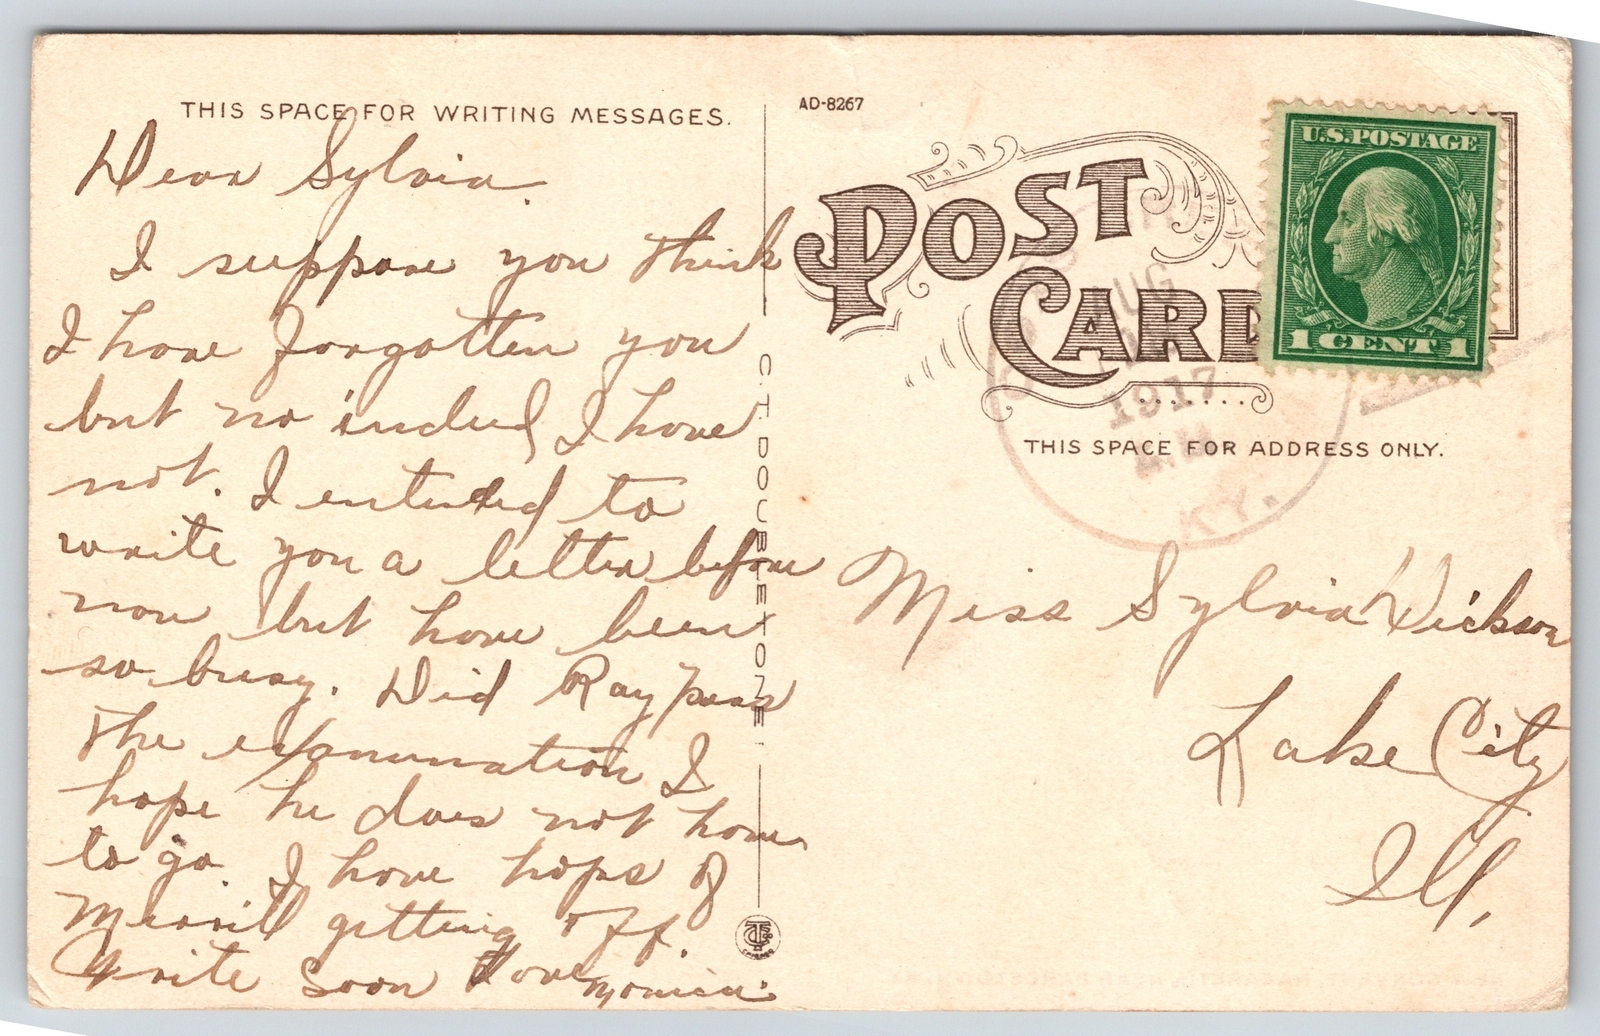 THIS SPACE FOR WRITING MESSAGES.
Dear Sylvia
I suppose you think
I have forgotten you
but no indeed I have
not. I intended to
write you a letter before
now but have been
so busy. Did Ray pass
the examination I
hope he does not have
to go. I have hops of
Merrill getting off.
Write soon Love
C.T. DOUBLETONE
AD-8267
POST
CARD
U.S. POSTAGE
1 CENT 1
AUG
1917
KY.
THIS SPACE FOR ADDRESS ONLY.
Miss Sylvia Dickson
Lake City
Ill,